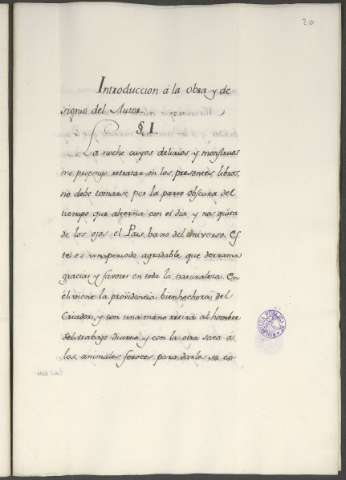 20
Introduccion á la obra y de
signio del Autor.
§ I.
La noche cuyos delirios y
me propongo retratar en los presentes libros,
no debe tomarse por la parte obscura del
tiempo que alterna con el dia y nos quita
de los ojos el Pais bajo del universo. Es
te es un periodo agradable que derrama
gracias y favores en toda la naturaleza. En
el viene la providencia bienhechora del
Criador, y con una mano retira al hombre
del trabajo diurno y con la otra saca á
los animales feroces para darle